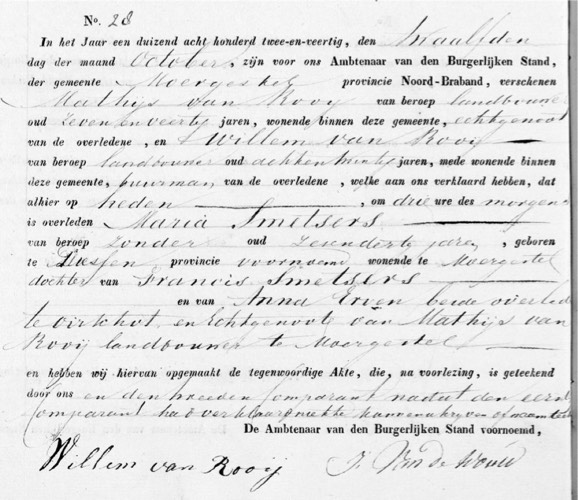 No. 28
In het Jaar een duizend acht honderd twee-en-veertig, den twaalfden
dag der maand October, zijn voor ons Ambtenaar van den Burgerlijken Stand,
der gemeente Moergestel provincie Noord-Braband, verschenen
Mathijs van Rooy van beroep landbouwer
oud zeven en veertig jaren, wonende binnen deze gemeente, echtgenoot
van de overledene, en Willem van Rooij
van beroep landbouwer oud jaren, mede wonende binnen
deze gemeente, buurman van de overledene, welke aan ons verklaard hebben, dat
alhier op heden, om drie ure des morgens
is overleden Maria Smetsers
van beroep zonder oud jaren, geboren
te Diessen provincie voornoemd wonende te Moergestel
dochter van Francis Smetsers
en van Anna Erven beide overleden
te Oirschot, en Echtgenoote van Mathijs van
Rooij landbouwer te Moergestel
en hebben wij hiervan opgemaakt de tegenwoordige Akte, die, na voorlezing, is geteekend
door ons en den tweeden Comparant nadat den eerst
Comparant had verklaard niet te kunnen schryven of
De Ambtenaar van den Burgerlijken Stand voornoemd,
Willem van Rooij